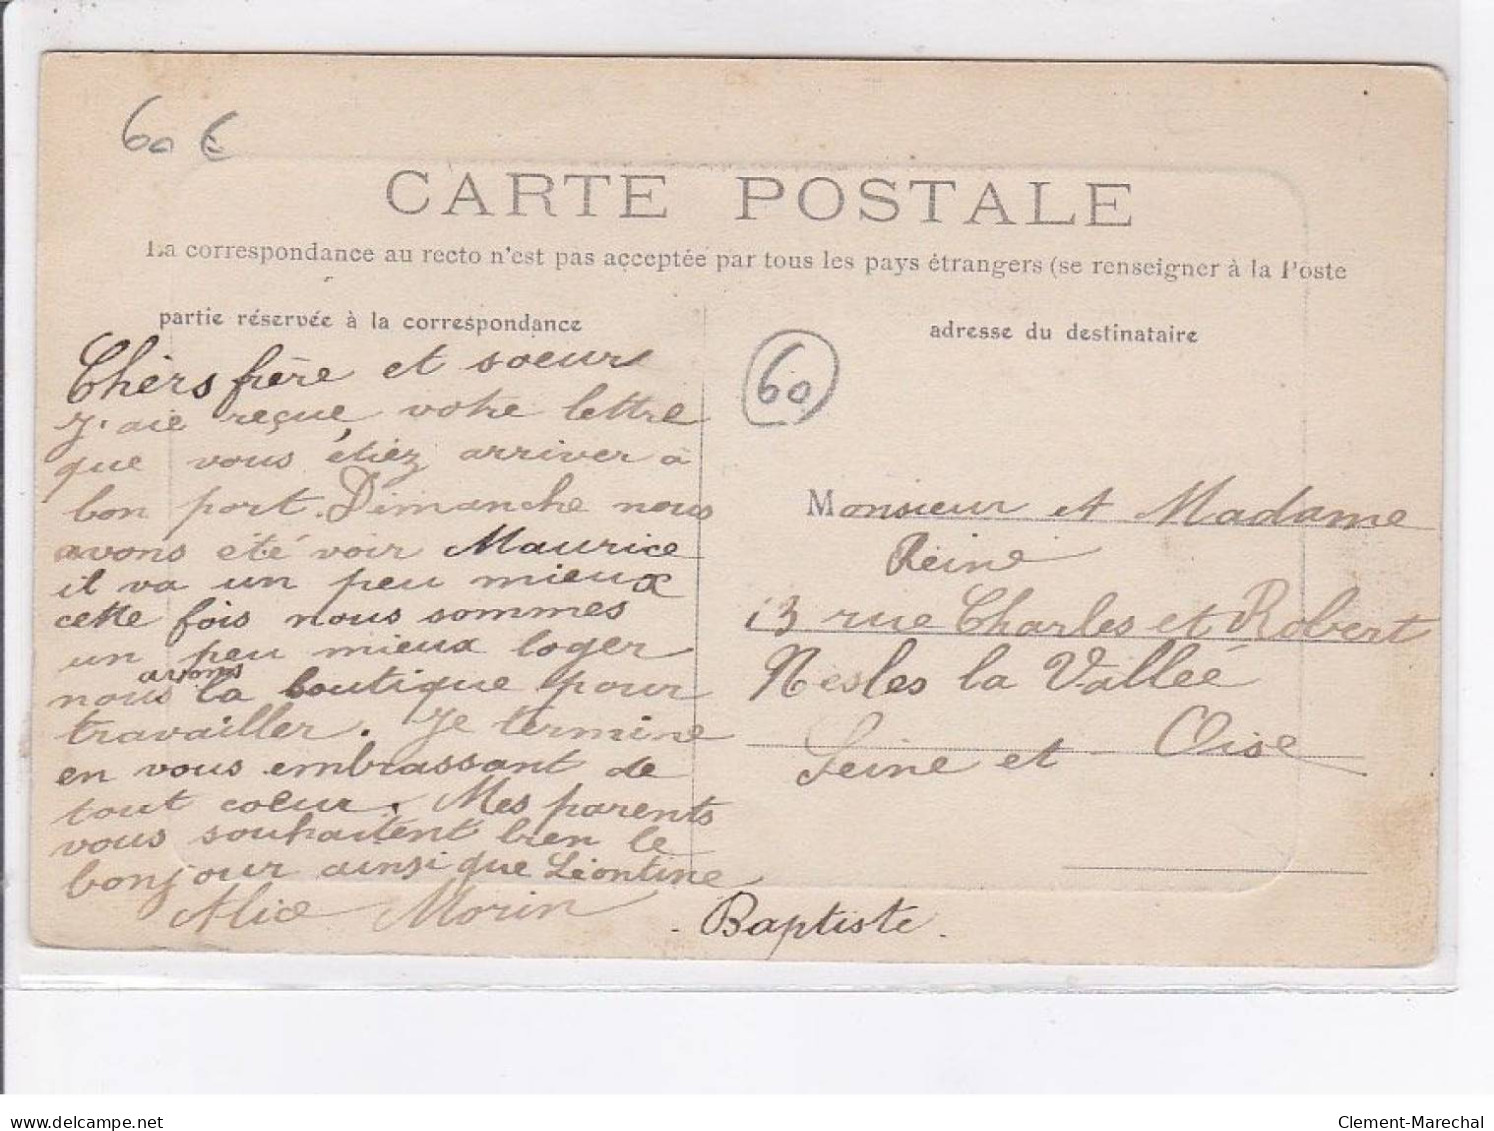 60 €
CARTE POSTALE
La correspondance au recto n'est pas acceptée par tous les pays étrangers (se renseigner à la Poste
partie réservée à la correspondance
Chèrs frère et soeur
J'aie reçue votre lettre
que vous étiez arriver a
bon port. Dimanche nous
avons eté voir Maurice
il va un peu mieux
cette fois nous sommes
un peu mieux loger
nous avons la boutique pour
travailler. Je termine
en vous embrassant de
tout coeur. Mes parents
vous souhaitent bien le
bonjour ainsi que Léontine
Alice Morin
Baptiste.
60
adresse du destinataire
Monsieur et Madame
Reine
13 rue Charles et Robert
Nesles la Vallée
Seine et Oise
delcampe.net
Clement-Marechal